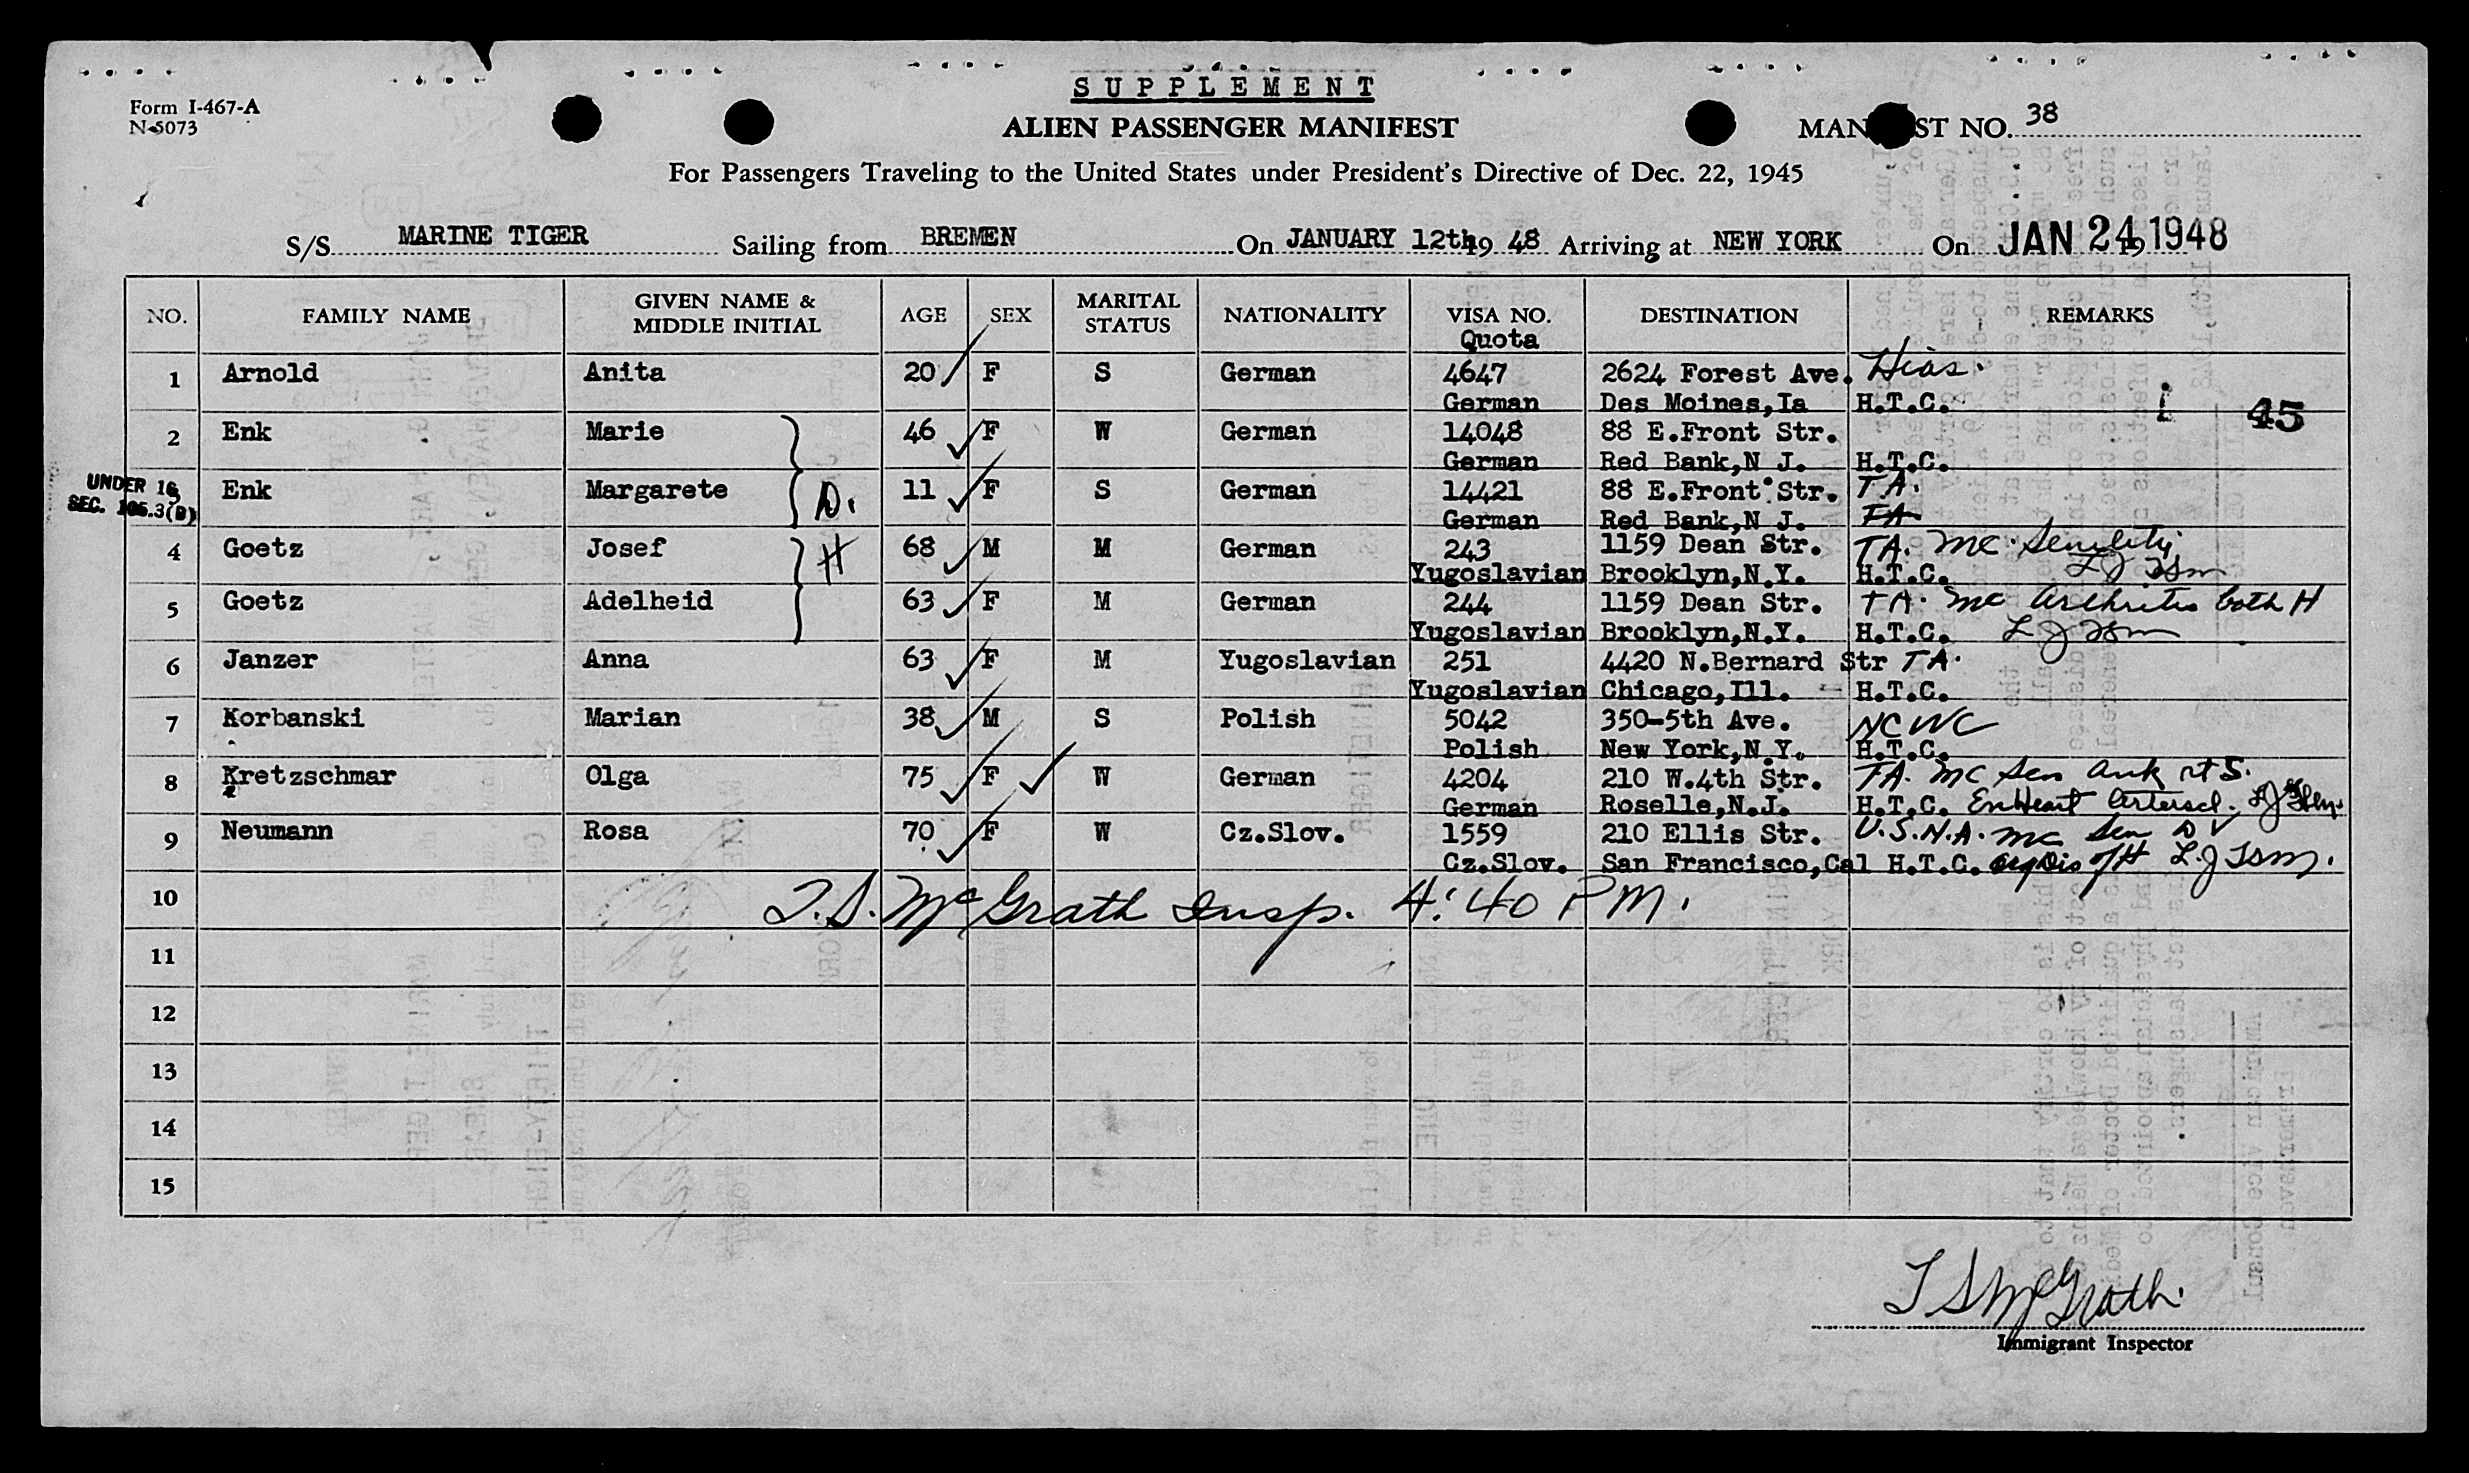 SUPPLEMENT
Form I-467-A
N-5073
ALIEN PASSENGER MANIFEST
MAN ST NO. 38
For Passengers Traveling to the United States under President's Directive of Dec. 22, 1945
S/S MARINE TIGER Sailing from BREMEN On JANUARY 12th 19 48 Arriving at NEW YORK On JAN 24 1948
NO. FAMILY NAME GIVEN NAME & MIDDLE INITIAL AGE SEX MARITAL STATUS NATIONALITY VISA NO. Quota DESTINATION REMARKS
1 Arnold Anita 20 F S German 4647 2624 Forest Ave. Hias.
German Des Moines,Ia H.T.C. 45
2 Enk Marie 46 F W German 14048 88 E.Front Str.
German Red Bank,N J. H.T.C.
UNDER 16
SEC. 105.3(B)
Enk Margarete D. 11 F S German 14421 88 E.Front Str. T.A.
German Red Bank,N J. TA
4 Goetz Josef H 68 M M German 243 1159 Dean Str. TA. MC Senility
Yugoslavian Brooklyn,N.Y. H.T.C.
5 Goetz Adelheid 63 F M German 244 1159 Dean Str. TA. MC Arthritis both H
Yugoslavian Brooklyn,N.Y. H.T.C.
6 Janzer Anna 63 F M Yugoslavian 251 4420 N.Bernard Str TA.
Yugoslavian Chicago,Ill. H.T.C.
7 Korbanski Marian 38 M S Polish 5042 350-5th Ave. NCWC
Polish New York,N.Y. H.T.C.
8 Kretzschmar Olga 75 F W German 4204 210 W.4th Str. TA. MC Sen Ank rt
German Roselle,N.J. H.T.C. En Heart
9 Neumann Rosa 70 F W Cz.Slov. 1559 210 Ellis Str. U.S.N.A. MC Sen
Cz.Slov. San Francisco,Cal H.T.C.
10 T.S. McGrath Insp. 4:40 PM.
11
12
13
14
15
T S McGrath
Immigrant Inspector